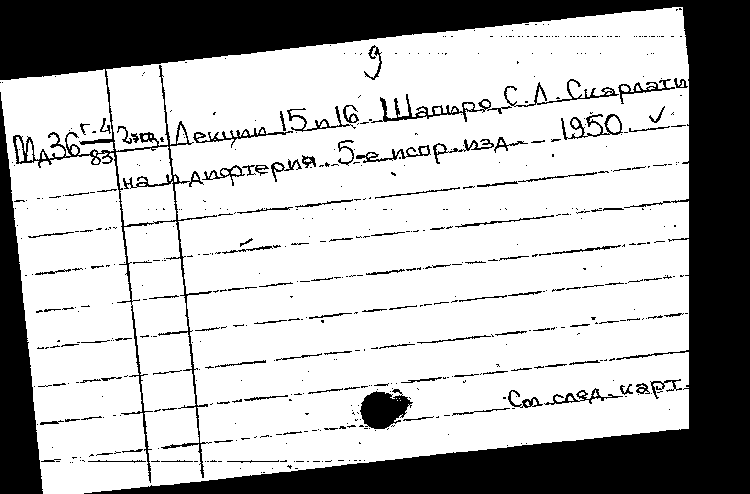 9
Мд36 Г-4/83 2 экз. Лекции 15 и 16. Шапиро, С. Л. Скарлати
на и дифтерия. 5-е испр. изд. 1950. ✓
См. след. карт.